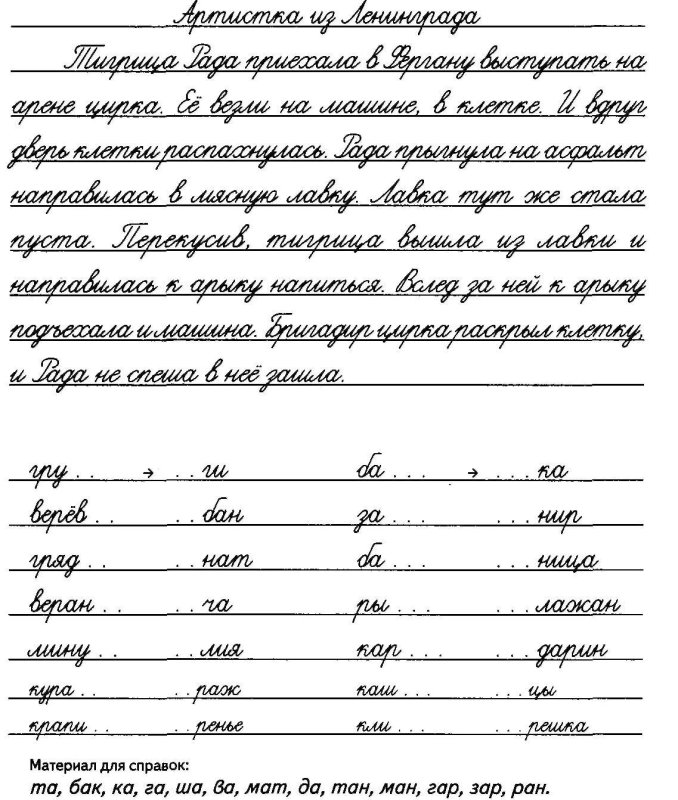 Артистка из Ленинграда
Тигрица Рада приехала в Фергану выступать на
арене цирка. Её везли на машине, в клетке. И вдруг
дверь клетки распахнулась. Рада прыгнула на асфальт
направилась в мясную лавку. Лавка тут же стала
пуста. Перекусив, тигрица вышла из лавки и
направилась к арыку напиться. Вслед за ней к арыку
подъехала и машина. Бригадир цирка раскрыл клетку,
и Рада не спеша в неё зашла.
гру . . → . . ги ба . . . → . . . ка
верёв . . . . бан за . . . . . . нир
гряд . . . . нат ба . . . . . . ница
веран . . . . ча ры . . . . . . лажан
мину . . . . лия кар . . . . . . дарин
кура . . . . раж каш . . . . . . цы
крапи . . . . ренье кли . . . . . . решка
Материал для справок:
та, бак, ка, га, ша, ва, мат, да, тан, ман, гар, зар, ран.